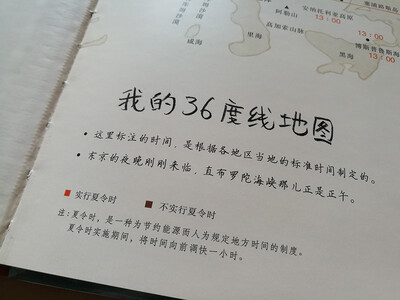 安纳托利亚高原
13:00
高加索山脉
咸海
里海
黑海
博斯普鲁斯海
13:00
我的36度线地图
• 这里标注的时间，是根据各地区当地的标准时间制定的。
• 东京的夜晚刚刚来临，直布罗陀海峡那儿正是正午。
实行夏令时 不实行夏令时
注：夏令时，是一种为节约能源而人为规定地方时间的制度。
夏令时实施期间，将时间向前调快一小时。